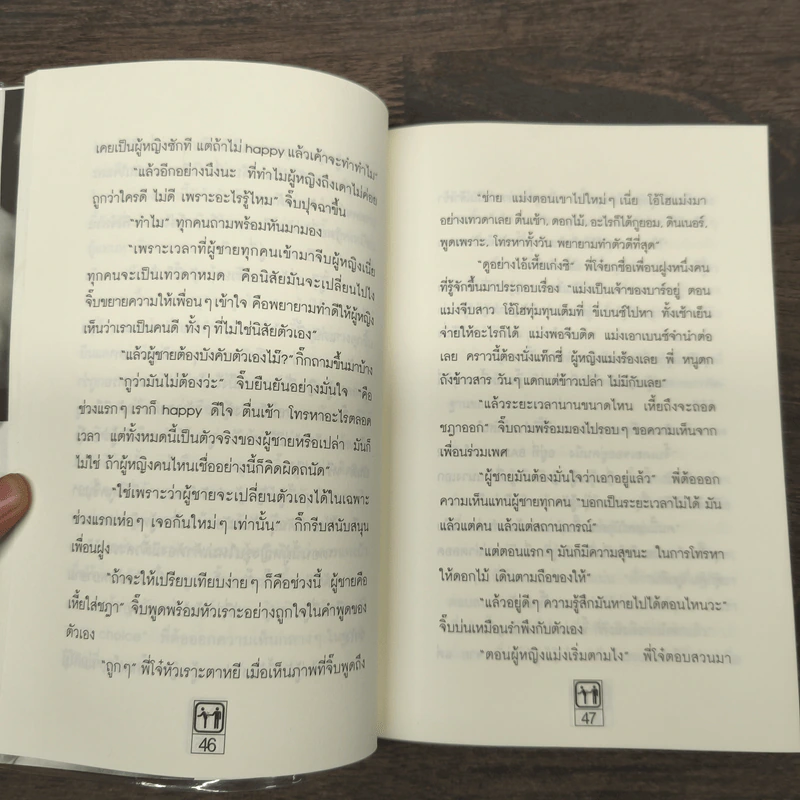 เคยเป็นผู้หญิงซักที แต่ถ้าไม่ happy แล้วเค้าจะทำทำไม"
"แล้วอีกอย่างนึงนะ ที่ทำไมผู้หญิงถึงเดาไม่ค่อย
ถูกว่าใครดี ไม่ดี เพราะอะไรรู้ไหม" จิ๊บปุจฉาขึ้น
"ทำไม" ทุกคนถามพร้อมหันมามอง
"เพราะเวลาที่ผู้ชายทุกคนเข้ามาจีบผู้หญิงเนี่ย
ทุกคนจะเป็นเทวดาหมด คือนิสัยมันจะเปลี่ยนไปไง
จิ๊บขยายความให้เพื่อนๆ เข้าใจ คือพยายามทำดีให้ผู้หญิง
เห็นว่าเราเป็นคนดี ทั้งๆ ที่ไม่ใช่นิสัยตัวเอง"
"แล้วผู้ชายต้องบังคับตัวเองไม๊?" กิ๊กถามขึ้นมาบ้าง
"กูว่ามันไม่ต้องว่ะ" จิ๊บยืนยันอย่างมั่นใจ "คือ
ช่วงแรกๆ เราก็ happy ดีใจ ตื่นเช้า โทรหาอะไรตลอด
เวลา แต่ทั้งหมดนี้เป็นตัวจริงของผู้ชายหรือเปล่า มันก็
ไม่ใช่ ถ้าผู้หญิงคนไหนเชื่ออย่างนี้ก็คิดผิดถนัด"
"ใช่เพราะว่าผู้ชายจะเปลี่ยนตัวเองได้ในเฉพาะ
ช่วงแรกเห่อๆ เจอกันใหม่ๆ เท่านั้น" กิ๊กรีบสนับสนุน
เพื่อนฝูง
"ถ้าจะให้เปรียบเทียบง่ายๆ ก็คือช่วงนี้ ผู้ชายคือ
เหี้ยใส่ชฎา" จิ๊บพูดพร้อมหัวเราะอย่างถูกใจในคำพูดของ
ตัวเอง
"ถูกๆ" พี่โจ๋หัวเราะตาหยี เมื่อเห็นภาพที่จิ๊บพูดถึง
46
"ช่าย แม่งตอนเขาไปใหม่ๆ เนี่ย โอ้โฮแม่งมา
อย่างเทวดาเลย ตื่นเช้า, ดอกไม้, อะไรก็ได้กูยอม, ดินเนอร์,
พูดเพราะ, โทรหาทั้งวัน พยายามทำตัวดีที่สุด"
"ดูอย่างไอ้เหี้ยเก่งซิ" พี่โจ๋ยกชื่อเพื่อนฝูงหนึ่งคน
ที่รู้จักขึ้นมาประกอบเรื่อง "แม่งเป็นเจ้าของบาร์อยู่ ตอน
แม่งจีบสาว โอ้โฮทุ่มทุนเต็มที่ ขี่เบนซ์ไปหา ทั้งเช้าเย็น
จ่ายให้อะไรก็ได้ แม่งพอจีบติด แม่งเอาเบนซ์จำนำต่อ
เลย คราวนี้ต้องนั่งแท็กซี่ ผู้หญิงแม่งร้องเลย พี่ หนูตก
ถังข้าวสาร วันๆ แดกแต่ข้าวเปล่า ไม่มีกับเลย"
"แล้วระยะเวลานานขนาดไหน เหี้ยถึงจะถอด
ชฎาออก" จิ๊บถามพร้อมมองไปรอบๆ ขอความเห็นจาก
เพื่อนร่วมเพศ
"ผู้ชายมันต้องมั่นใจว่าเอาอยู่แล้ว" พี่ต้อออก
ความเห็นแทนผู้ชายทุกคน "บอกเป็นระยะเวลาไม่ได้ มัน
แล้วแต่คน แล้วแต่สถานการณ์"
"แต่ตอนแรกๆ มันก็มีความสุขนะ ในการโทรหา
ให้ดอกไม้ เดินตามถือของให้"
"แล้วอยู่ดีๆ ความรู้สึกมันหายไปได้ตอนไหนวะ"
จิ๊บบ่นเหมือนรำพึงกับตัวเอง
"ตอนผู้หญิงแม่งเริ่มตามไง" พี่โจ๋ตอบสวนมา
47